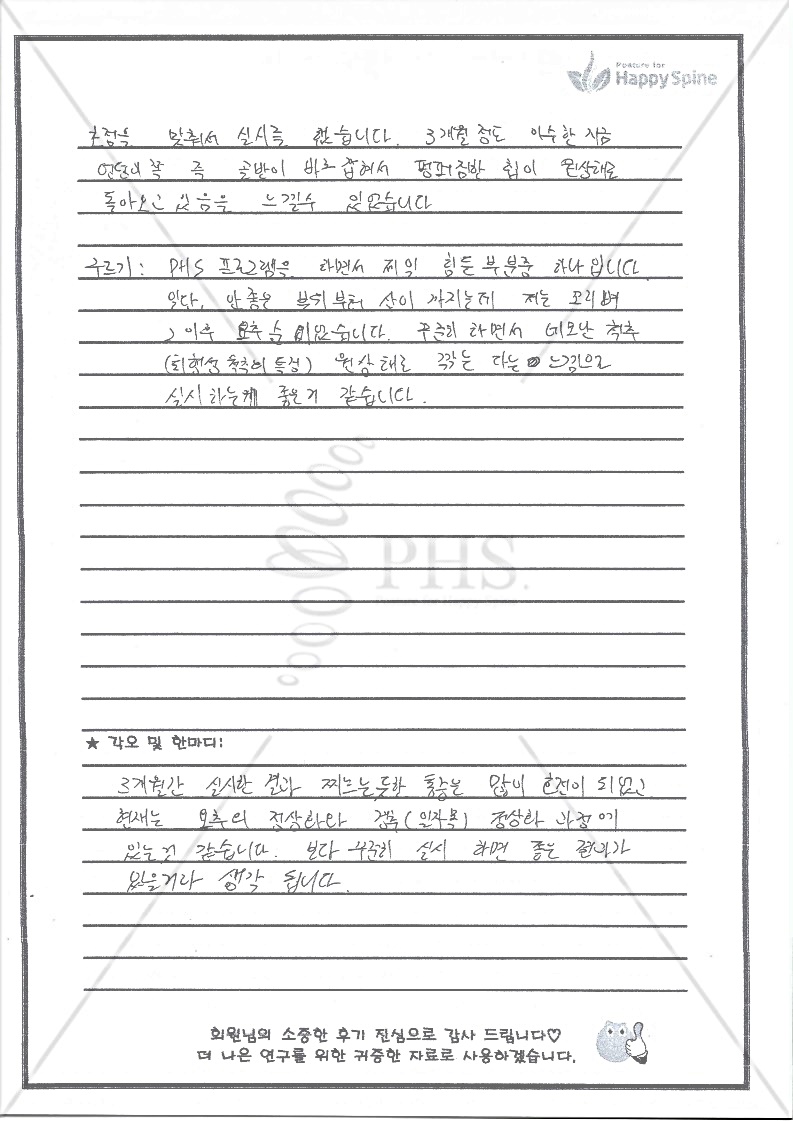 Posture for
Happy Spine
초점을 맞춰서 실시를 했습니다. 3개월 정도 이수한 지금
즉 골반이 바로 잡혀서 힘이 원상태로
돌아오고 있음을 느낄수 있었습니다
구르기: PHS 프로그램을 하면서 제일 힘든 부분중 하나 입니다.
안좋은 부위부터 살이 까지는데 저는 꼬리뼈
이후 요추순 이었습니다. 꾸준히 하면서 네모난 척추
(퇴행성 척추의 특징) 원상태로 깎는 다는 느낌으로
실시하는게 좋은거 같습니다.
PHS.
★ 각오 및 한마디:
3개월간 실시한 결과 찌르는듯한 통증은 많이 호전이 되었고
현재는 요추의 정상화와 경추(일자목) 정상화 과정에
있는것 같습니다. 보다 꾸준히 실시 하면 좋은 결과가
있을거라 생각 됩니다.
회원님의 소중한 후기 진심으로 감사 드립니다♡
더 나은 연구를 위한 귀중한 자료로 사용하겠습니다.